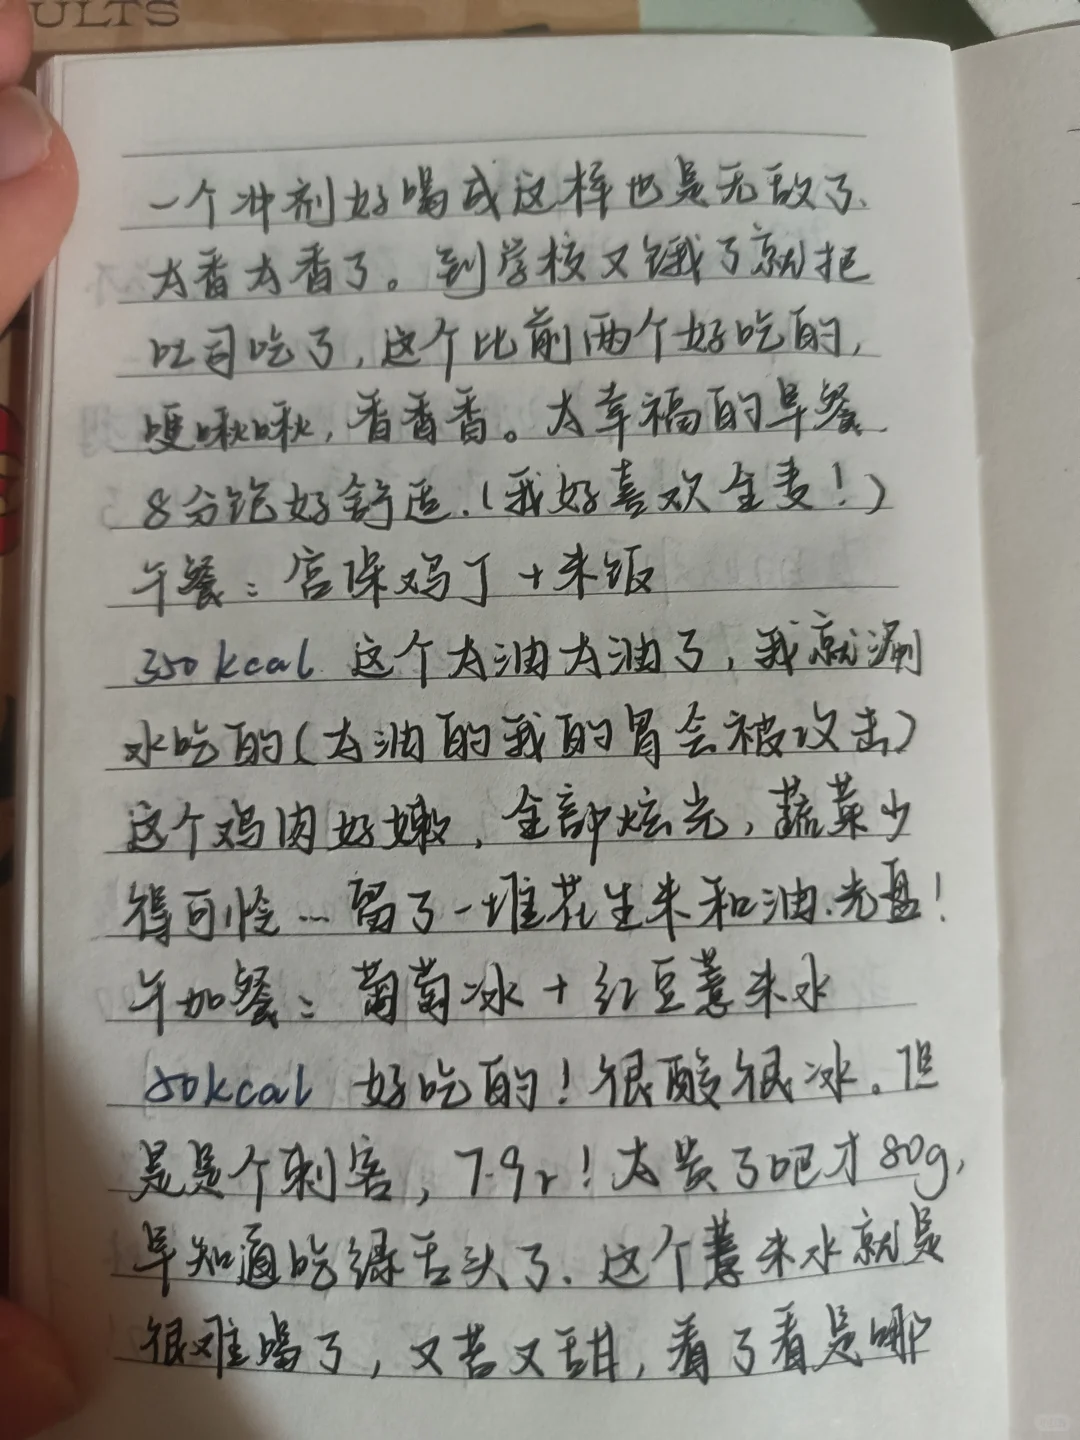 ULTS
一个冲剂好喝成这样也是无敌了、
太香太香了。到学校又饿了就把
吐司吃了,这个比前两个好吃的,
嘎啾啾,香香香。太幸福的早餐
8分饱好舒适.(我好喜欢全麦!)
午餐:宫保鸡丁+米饭
350kcal 这个太油太油了,我就涮
水吃的(太油的我的胃会被攻击)
这个鸡肉好嫩,全部炫光,蔬菜少
得可怜…留了一堆花生米和油.光盘!
午加餐:葡萄冰+红豆薏米水
80kcal 好吃的!很酸很冰。但
是是个刺客,7.9r!太贵了吧才80g,
早知道吃绿舌头了、这个薏米水就是
很难喝了,又苦又甜,看了看是哪